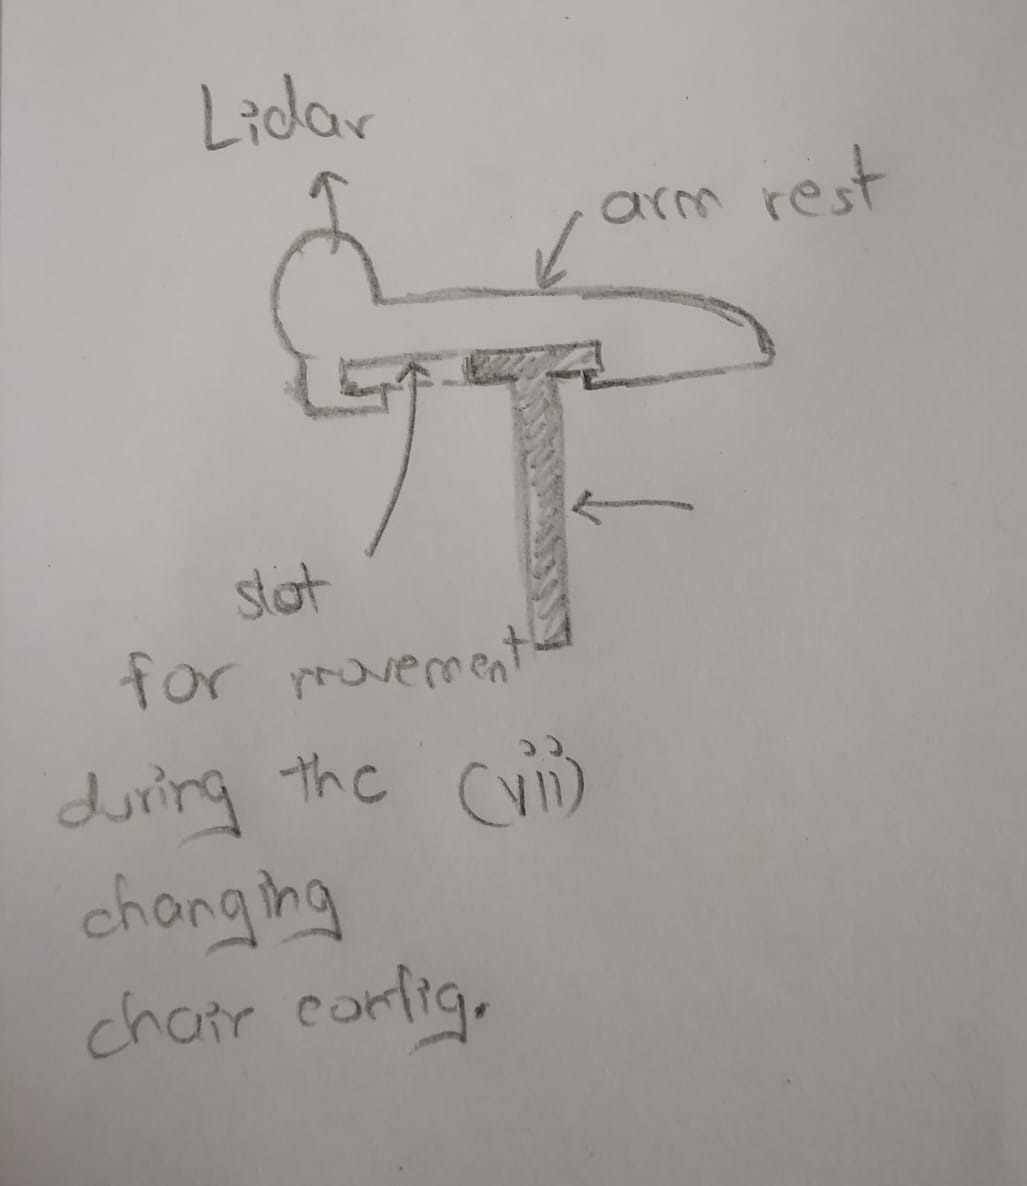 Lidar
arm rest
slot
for movement
during the (vii)
changing
chair config.